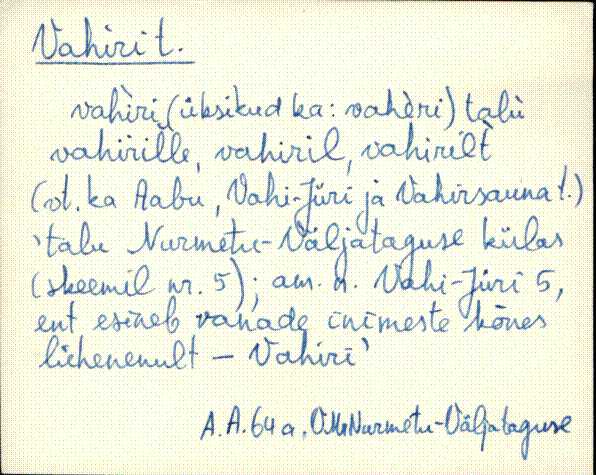 Vahiri t.
vahìri (üksikud ka: vahèri) talù
vahirille, vahiril, vahirilt
(vt. ka Aabu, Vahi-Jüri ja Vahirsauna t.)
'talu Nurmetu-Väljataguse külas
(skeemil nr. 5); am. n. Vahi-Jüri 5,
ent esineb vanade inimeste kõnes
lühenenult – Vahiri'
A.A. 64 a, VMr Nurmetu-Väljataguse